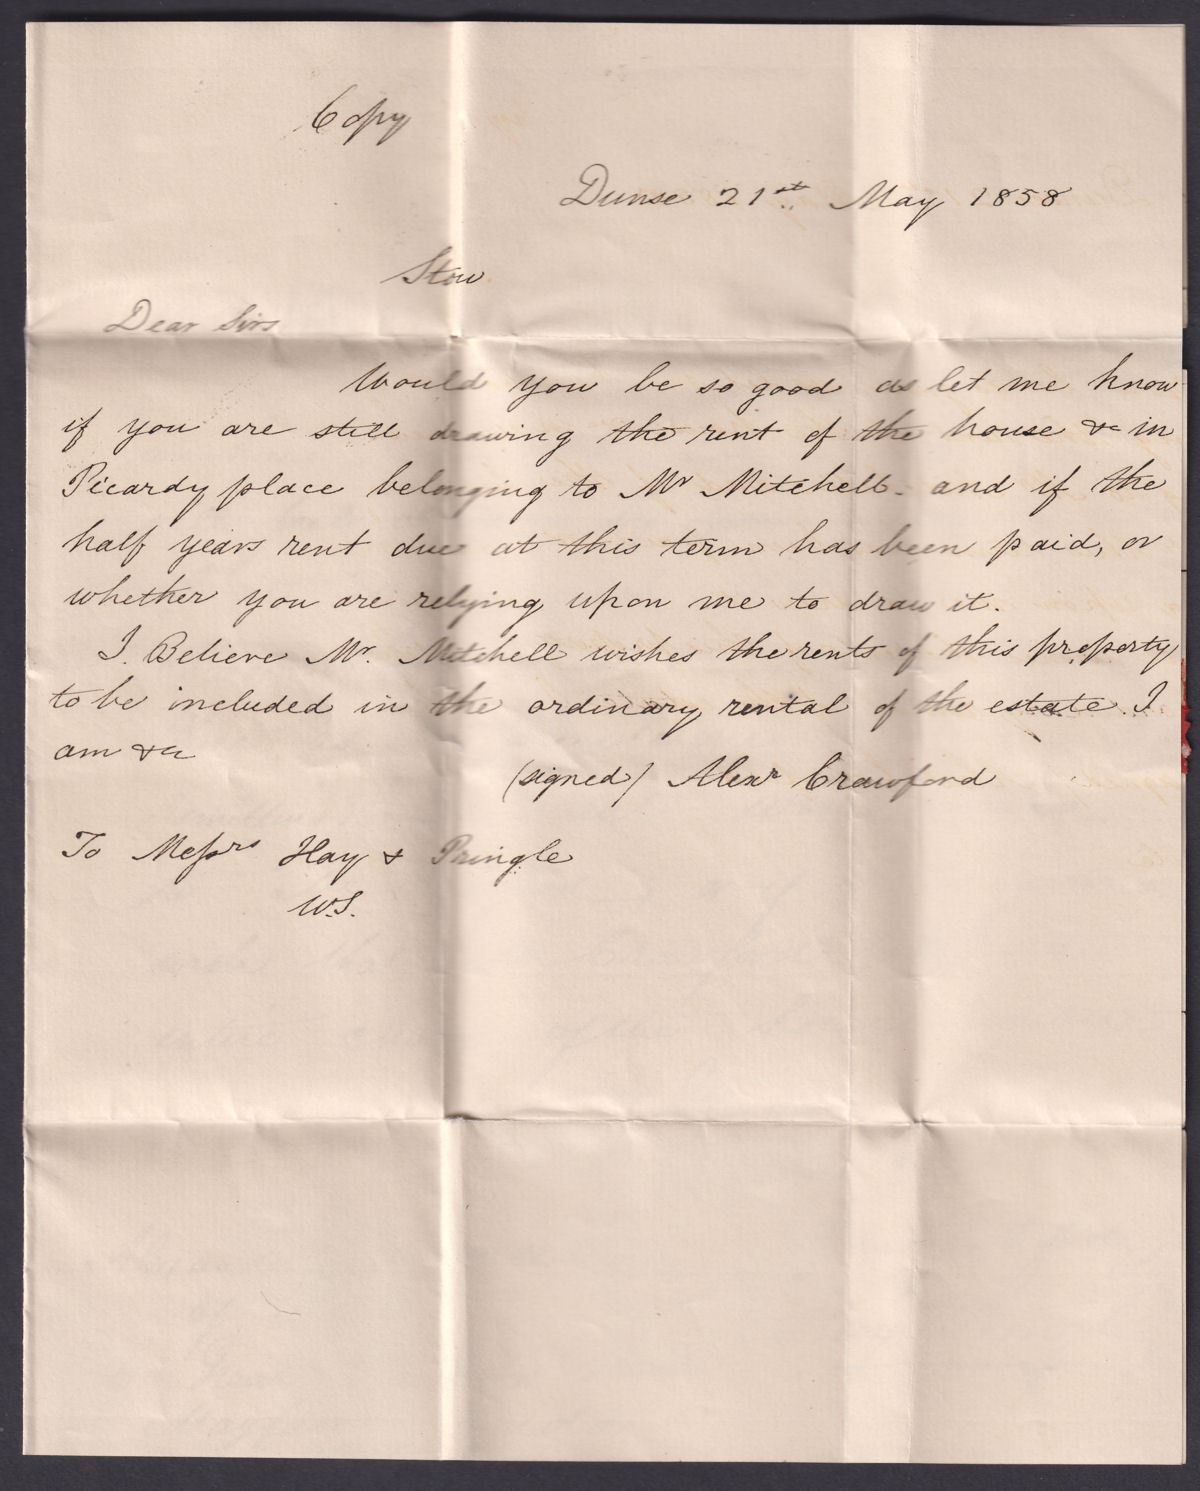 Copy
Dunse 21st. May 1858
Stow
Dear Sirs
Would you be so good as let me know
if you are still drawing the rent of the house &c in
Picardy place belonging to Mr Mitchell. and if the
half years rent due at this term has been paid, or
whether you are relying upon me to draw it.
I. Believe Mr. Mitchell wishes the rents of this property
to be included in the ordinary rental of the estate. I
am &c
(signed) Alexr Crawford
To Messrs Hay & Pringle
W.S.